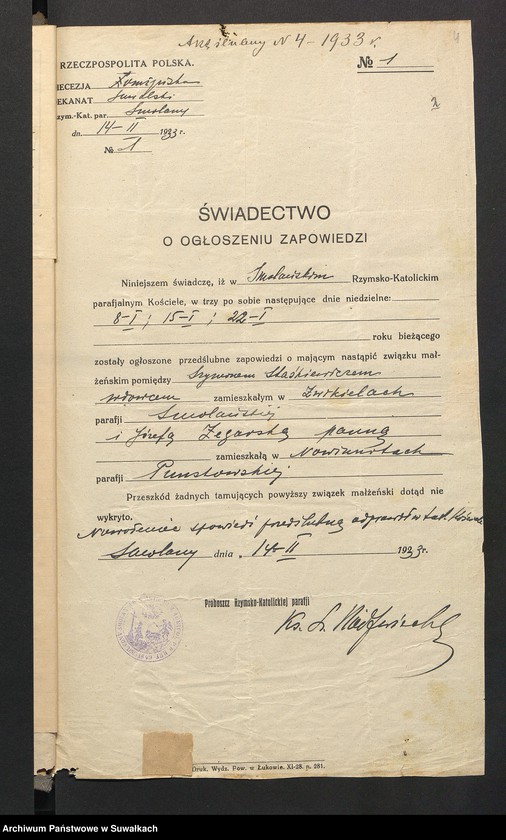 Akt ślubny N 4 - 1933 r.
4
RZECZPOSPOLITA POLSKA.
№ 1
IECEZJA Łomżyńska
EKANAT Suwalski
zym.-Kat. par. Smolany
2
dn. 14-II 1933 r.
№ 1
ŚWIADECTWO
O OGŁOSZENIU ZAPOWIEDZI
Niniejszem świadczę, iż w Smolańskim Rzymsko-Katolickim
parafjalnym Kościele, w trzy po sobie następujące dnie niedzielne:
8-I; 15-I; 22-I
roku bieżącego
zostały ogłoszone przedślubne zapowiedzi o mającym nastąpić związku mał-
żeńskim pomiędzy Szymonem Staśkiewiczem
wdowcem zamieszkałym w Żwikielach
parafji Smolańskiej
i Józefą Zegarską panną
zamieszkałą w Nowinikach
parafji Puńskowskiej
Przeszkód żadnych tamujących powyższy związek małżeński dotąd nie
wykryto.
spowiedź przedślubną w tut. Kościele
Smolany dnia 14-II 1933 r.
Proboszcz Rzymsko-Katolickiej parafji
Ks. S.
Druk. Wydz. Pow. w Łukowie. XI-28. n. 281.
Archiwum Państwowe w Suwałkach